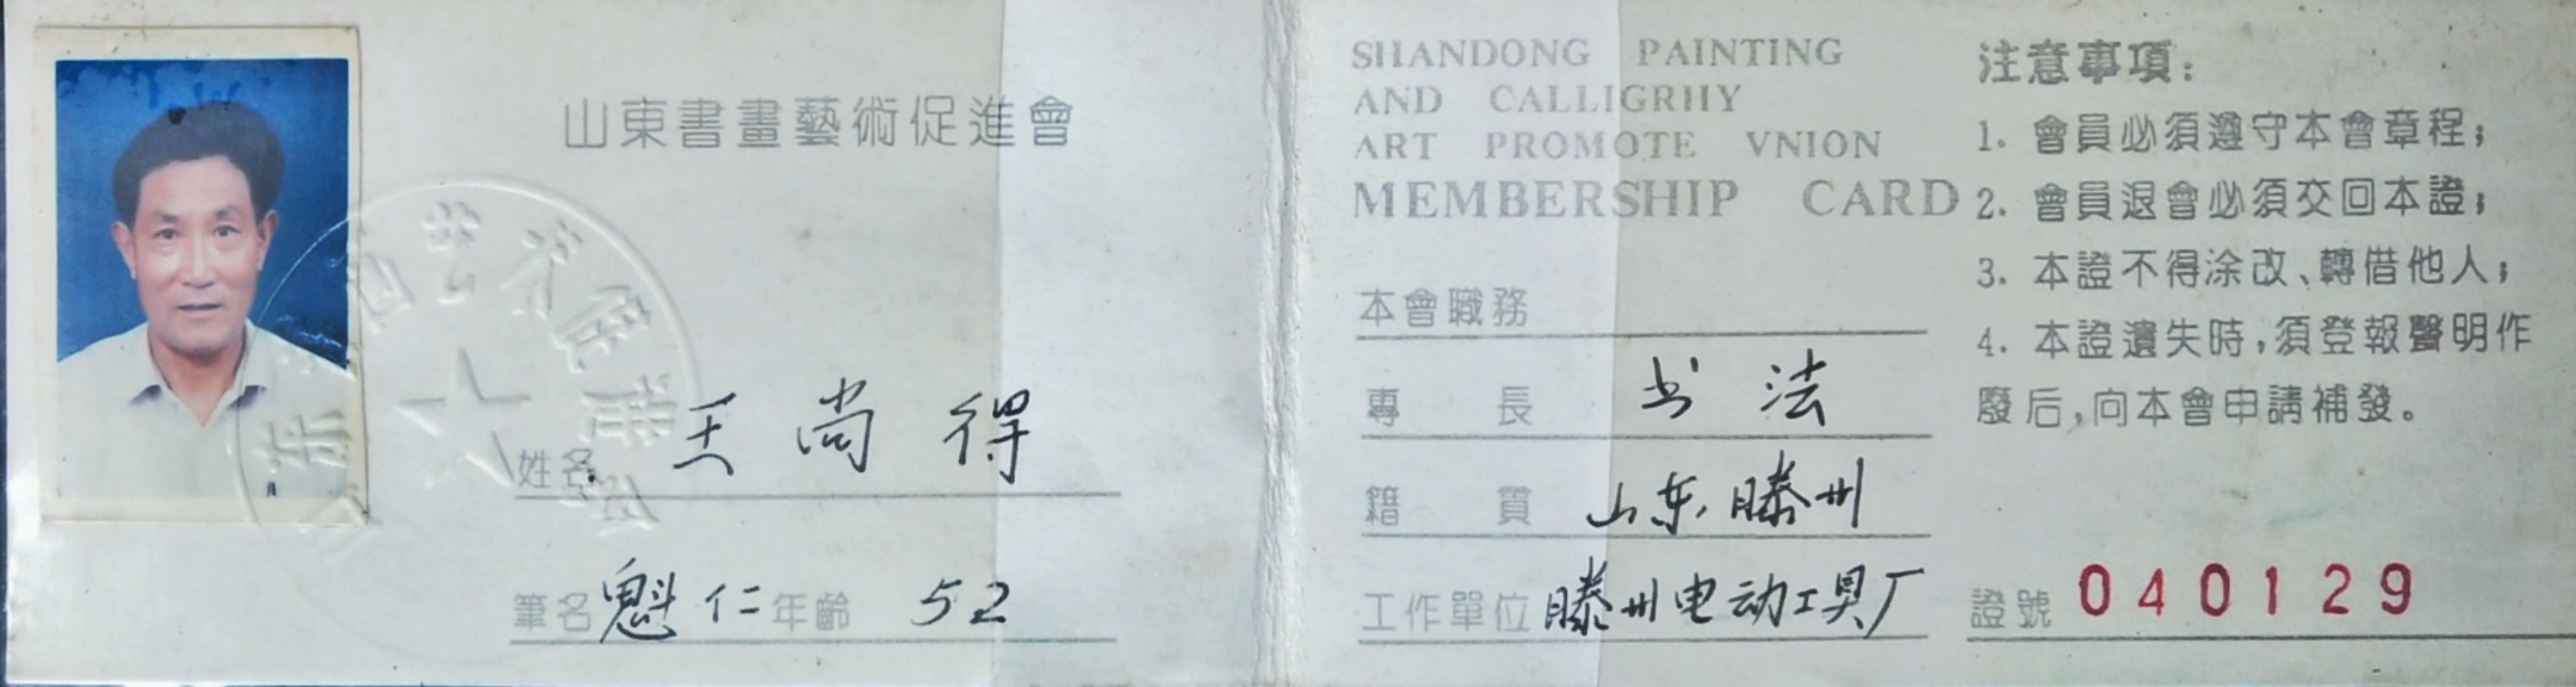 山東書畫藝術促進會
姓名 王尚得
筆名 魁仁 年齡 52
SHANDONG PAINTING
AND CALLIGRHY
ART PROMOTE VNION
MEMBERSHIP CARD
本會職務
專長 书法
籍貫 山东滕州
工作單位 滕州电动工具厂
注意事項：
1. 會員必須遵守本會章程；
2. 會員退會必須交回本證；
3. 本證不得涂改、轉借他人；
4. 本證遺失時，須登報聲明作
廢后，向本會申請補發。
證號 040129